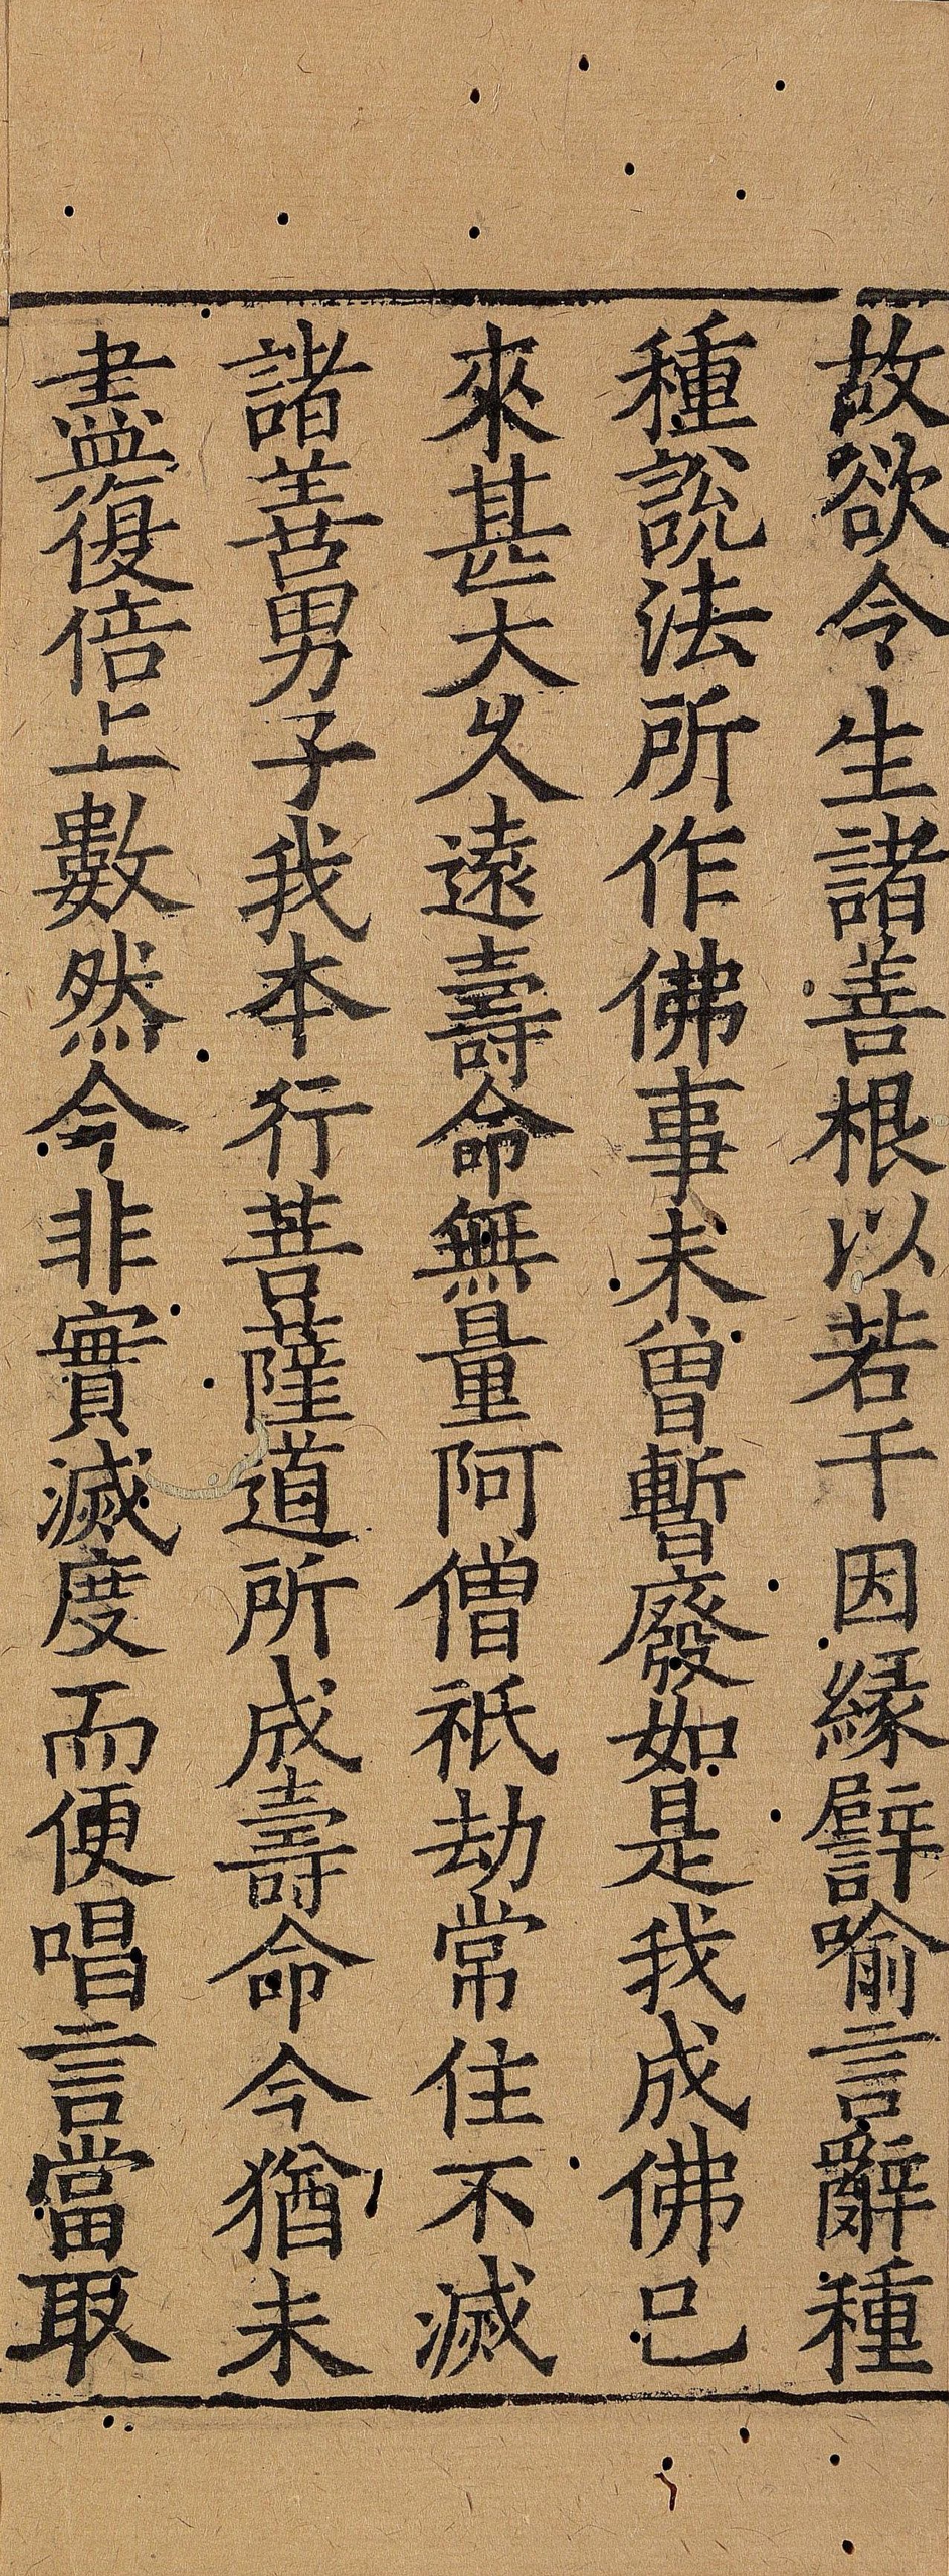 故欲令生諸善根以若干因緣譬喻言辭種
種說法所作佛事未曾暫廢如是我成佛已
來甚大久遠壽命無量阿僧祇劫常住不滅
諸善男子我本行菩薩道所成壽命今猶未
盡復倍上數然今非實滅度而便唱言當取